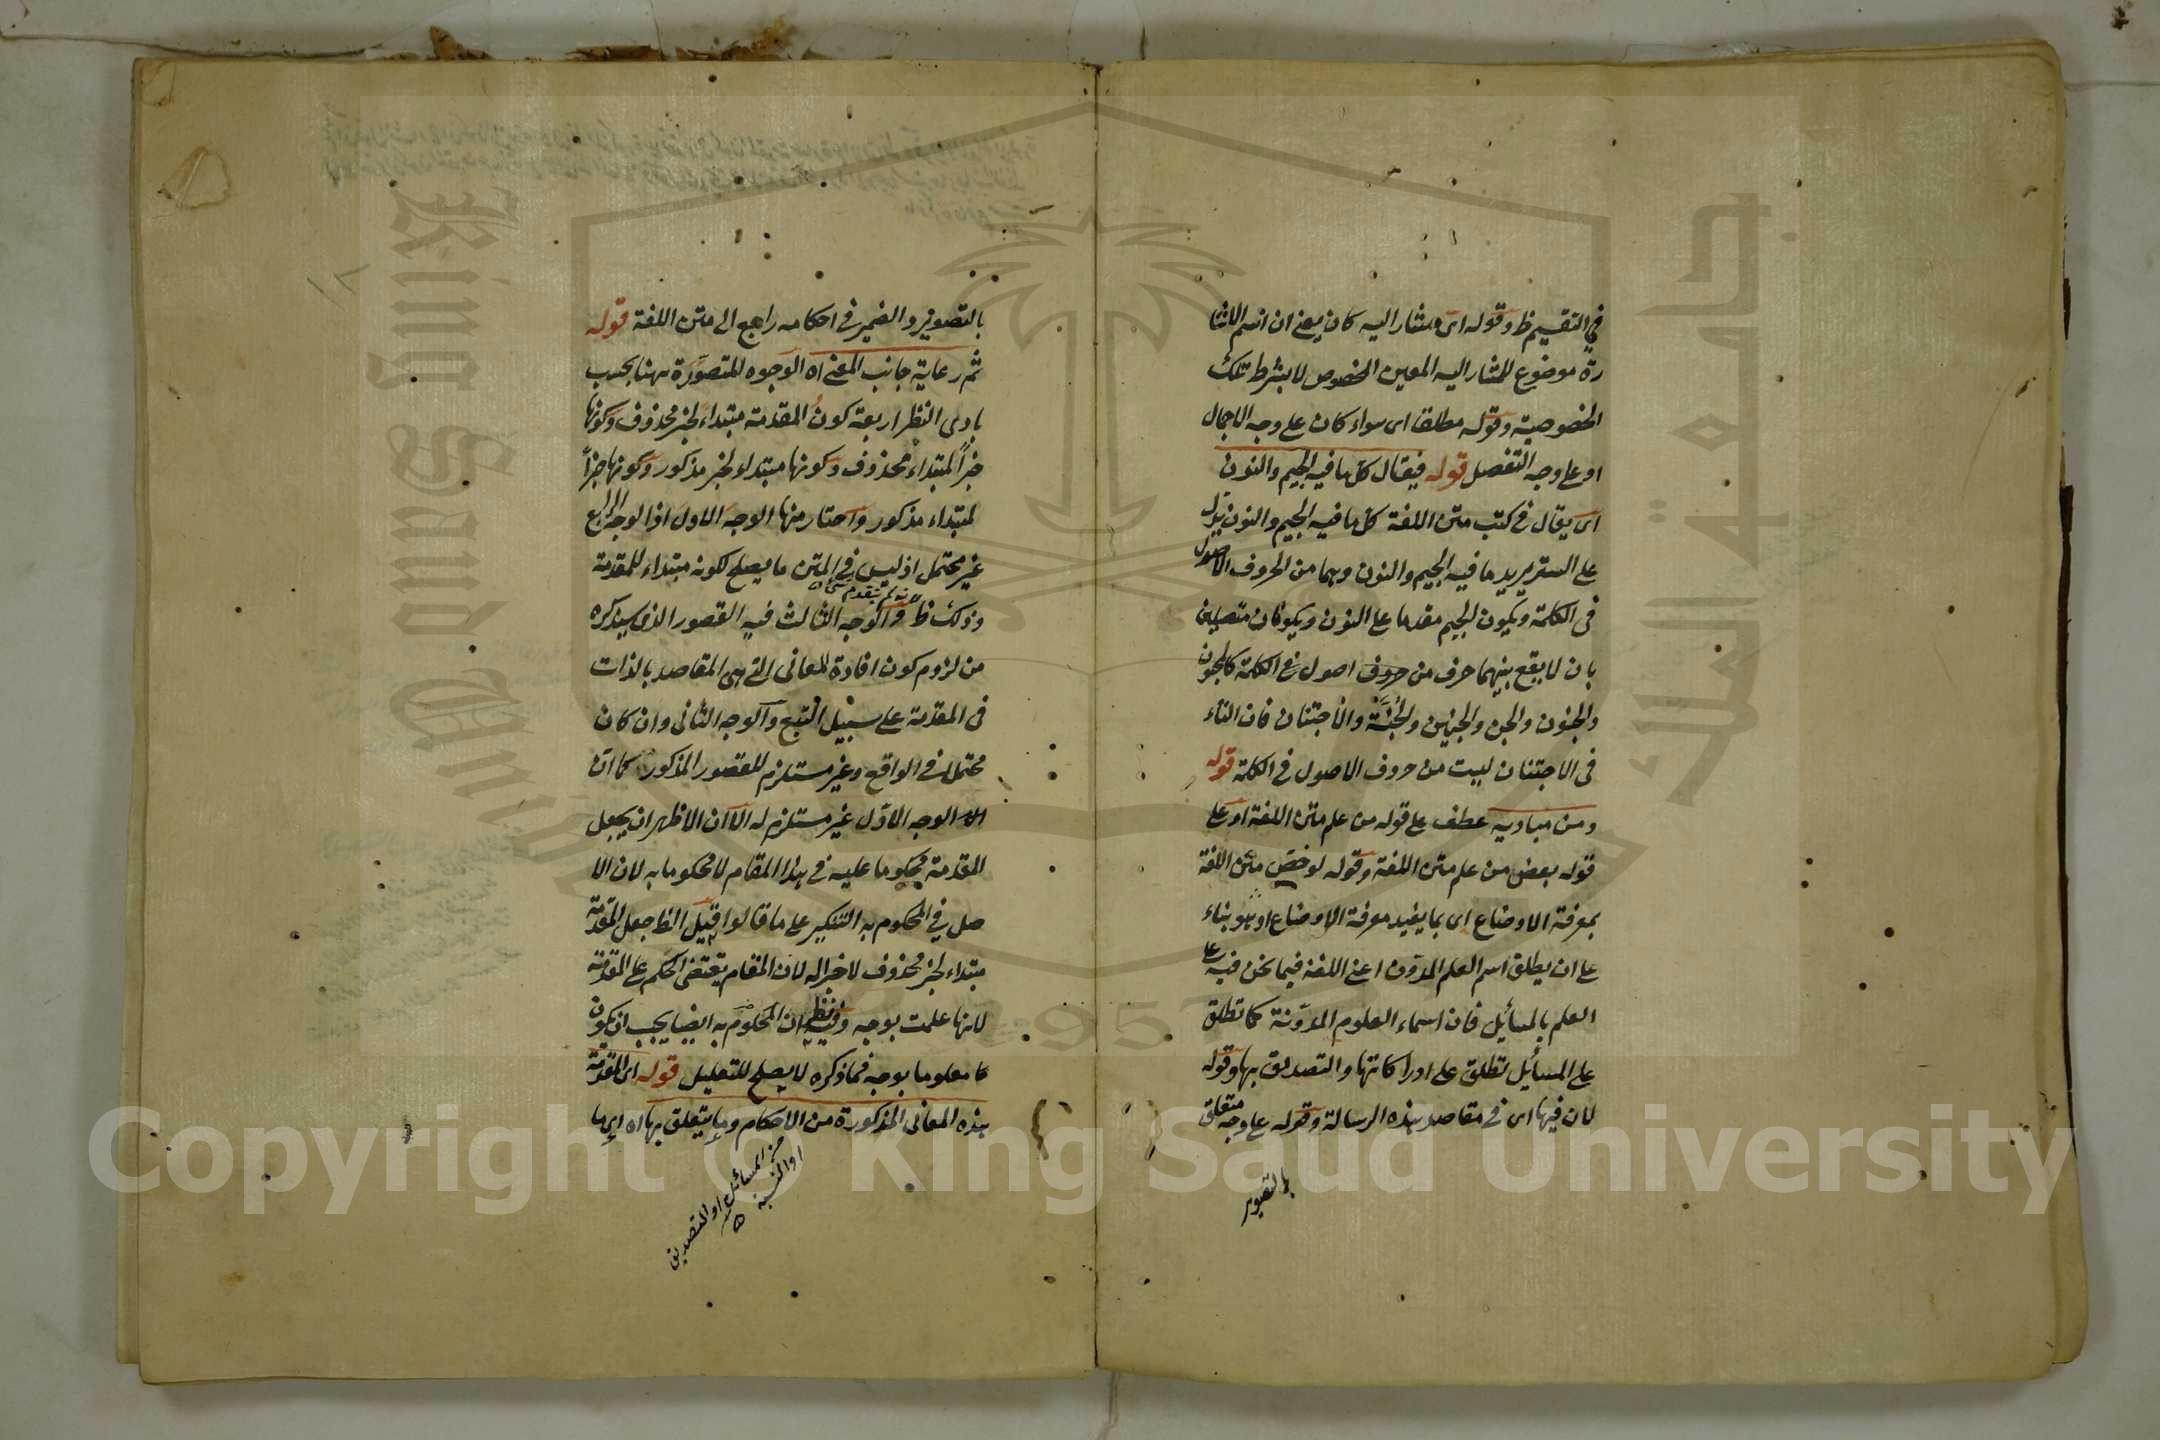 في التقسيم ظ وقوله اى مشار اليه كان يعني ان اسم الاشا
رة موضوع للمشار اليه المعين المخصوص لا بشرط تلك
الخصوصية وقوله مطلقا اى سواء كان على وجه الاجمال
او على وجه التفصل قوله فيقال كل ما فيه الجيم والنون
اى يقال في كتب متن اللغة كل ما فيه الجيم والنون يدل
على الستر يريد ما فيه الجيم والنون وهما من الحروف الاصول
فى الكلمة ويكون الجيم مقدما على النون ويكونان متصلين
بان لا يقع بينهما حرف من حروف اصول في الكلمة كالمجون
والجنون والجن والجنين والجُنَّة والاجتنان فان التاء
فى الاجتنان ليست من حروف الاصول في الكلمة قوله
ومن مباديه عطف على قوله من علم متن اللغة او على
قوله بعض من علم متن اللغة وقوله لو خصّ متن اللغة
بمعرفة الاوضاع اى بما يفيد معرفة الاوضاع او هو بناء
على ان يطلق اسم العلم المدوّن اعني اللغة فيما نحن فيه على
العلم بالمسائل فان اسماء العلوم المدوّنة كما تطلق
على المسائل تطلق على ادراكاتها والتصديق بها وقوله
لان فيها اى في مقاصد هذه الرسالة وقوله على وجه متعلق
بالتصوير
بالتصوير والضمير في احكامه راجع الى متن اللغة قوله
ثم رعاية جانب المعنى اه الوجوه المتصوّرة ههنا بحسب
بادى النظر اربعة كون المقدمة مبتداء لخبر محذوف وكونها
خبرًا لمبتداء محذوف وكونها مبتداء لخبر مذكور وكونها خبرًا
لمبتداء مذكور واختار منها الوجه الاول اذ الوجه الرابع
غير محتمل اذ ليس في المتن ما يصلح لكونه مبتداء للمقدمة
وذلك ظ والوجه الثالث فيه القصور الذى سيذكره
من لزوم كون افادة المعانى التى هى المقاصد بالذات
فى المقدّمة على سبيل التبع والوجه الثانى وان كان
محتملا في الواقع وغير مستلزم للقصور المذكور كما ان
الوجه الاوّل غير مستلزم له الا ان الاظهر ان يجعل
المقدمة محكوما عليه في هذا المقام لا محكوما به لان الا
صل في المحكوم به التنكير على ما قالوا قيل الظ جعل المقدمة
مبتداء لخبر محذوف لا خبرا له لان المقام يقتضى الحكم على المقدمة
لانها علمت بوجه وفيه نظر ان المحكوم به ايضا يجب ان يكون
معلوما بوجه فما ذكره لا يصلح للتعليل قوله اى المقدمة
هذه المعانى المذكورة من الاحكام وما يتعلق بها اه اى ما
من المسائل او التصديق
او النسبة